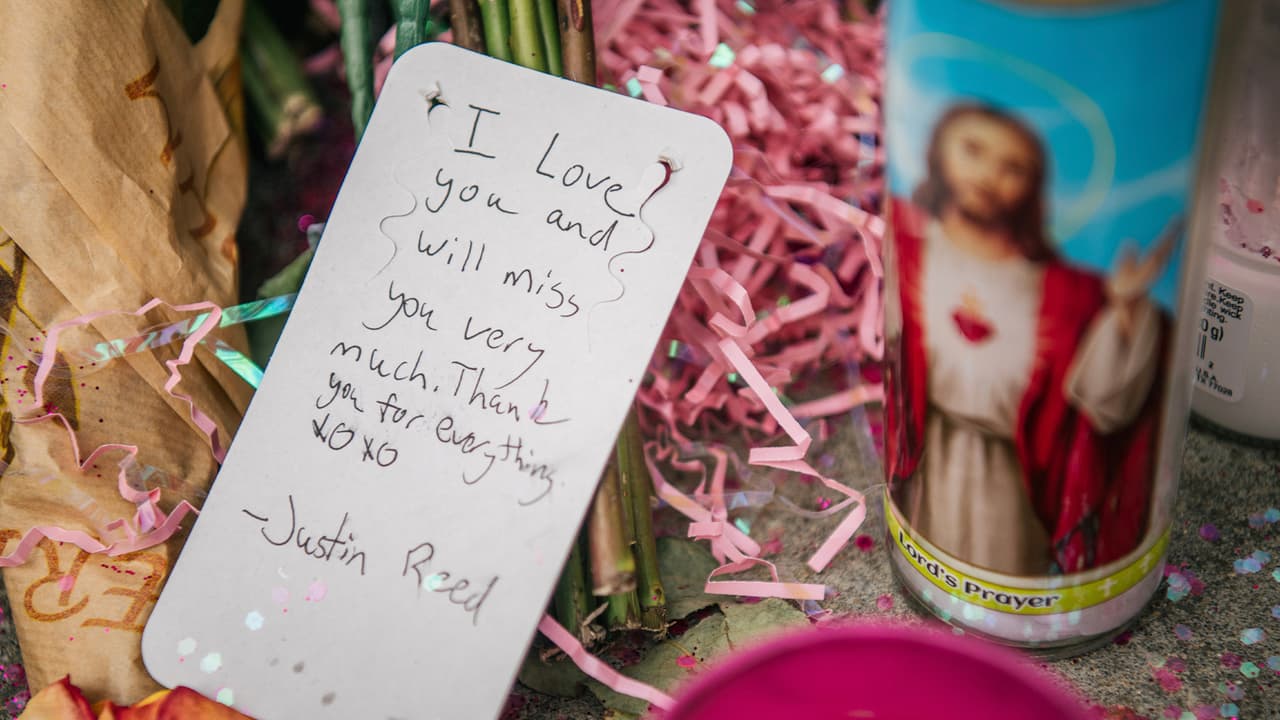 I Love
you and
will miss
you very
much. Thank
you for everything
XOXO
-Justin Reed
Lord's Prayer
Keep
Keep
wick
g)